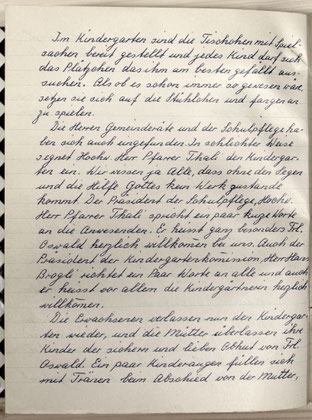 Im Kindergarten sind die Tischchen mit Spiel-
sachen bereit gestellt und jedes Kind darf sich
das Plätzchen das ihm am besten gefällt aus-
suchen. Als ob es schon immer so gewesen wäre,
setzen sie sich auf die Stühlchen und fangen an
zu spielen.
Die Herren Gemeinderäte und der Schulpflege ha-
ben sich auch eingefunden. In schlichter Weise
segnet Hochw. Herr Pfarrer Thali den Kindergar-
ten ein. Wir wissen ja Alle, dass ohne den Segen
und die Hilfe Gottes kein Werk zustande
kommt. Der Präsident der Schulpflege, Hochw.
Herr Pfarrer Thali spricht ein paar kurze Worte
an die Anwesenden. Er heisst ganz besonders Frl.
Oswald herzlich willkommen bei uns. Auch der
Präsident der Kindergartenkomission, Herr Hans
Brogli richtet ein Paar Worte an alle und auch
er heisst vor allem die Kindergärtnerin herzlich
willkomen.
Die Erwachsenen verlassen nun den Kindergar-
ten wieder, und die Mütter überlassen ihre
Kinder der sichern und lieben Obhut von Frl.
Oswald. Ein paar Kinderaugen füllen sich
mit Tränen beim Abschied von der Mutter,